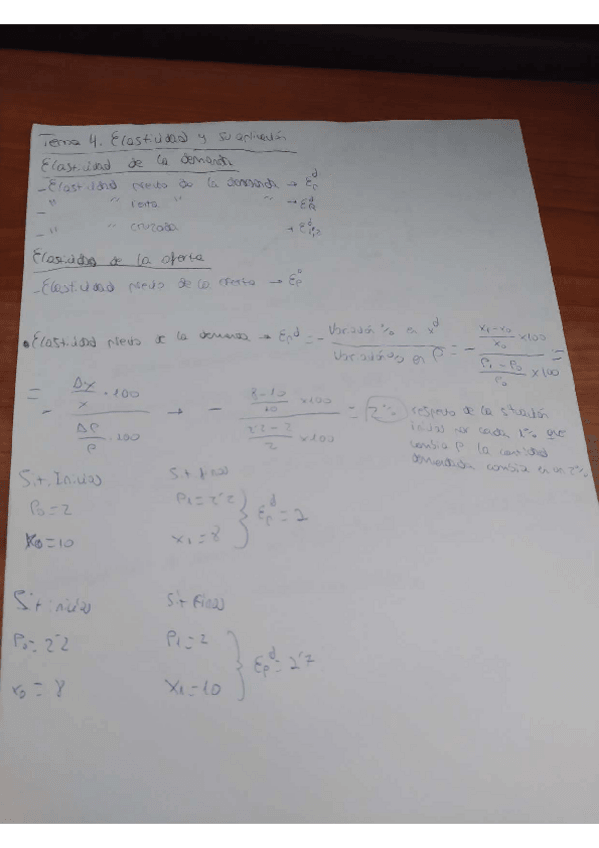 Tema 4. Elasticidad y su aplicación
Elasticidad de la demanda
- Elasticidad precio de la demanda → Epᵈ
- " " renta " " → ERᵈ
- " " cruzada → Eᵈ
Elasticidad de la oferta
- Elasticidad precio de la oferta → Epᵒ
• Elasticidad precio de la demanda → Epᵈ = - Variación % en xᵈ / Variación % en P = - ((x₁ - x₀)/x₀ × 100) / ((P₁ - P₀)/P₀ × 100) =
= - (Δx/x · 100) / (ΔP/P · 100) → - ((8-10)/10 × 100) / ((2'2-2)/2 × 100) = 2% respecto de la situación
inicial cada 1% que
cambia P la cantidad
demandada cambia en un 2%.
Sit. Inicial Sit final
P₀ = 2 P₁ = 2'2
x₀ = 10 x₁ = 8 } Epᵈ = 2
Sit inicial Sit Final
P₀ = 2'2 P₁ = 2
x₀ = 8 x₁ = 10 } Epᵈ = 2'7